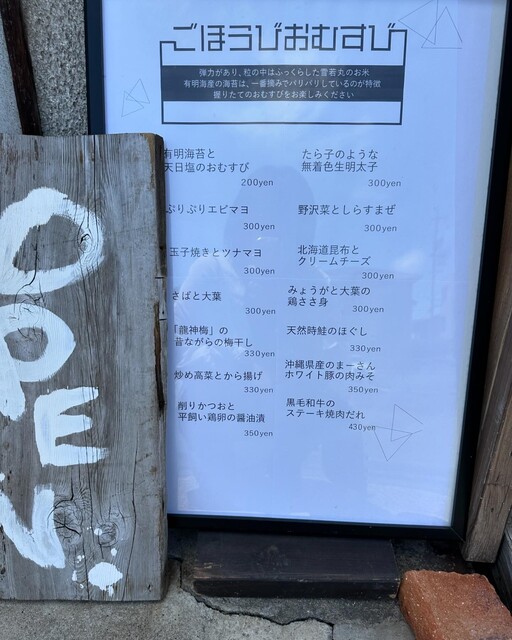 ごほうびおむすび
弾力があり、粒の中はふっくらした雪若丸のお米
有明海産の海苔は、一番摘みでパリパリしているのが特徴
握りたてのおむすびをお楽しみください
有明海苔と
天日塩のおむすび
200yen
ぷりぷりエビマヨ
300yen
玉子焼きとツナマヨ
300yen
さばと大葉
300yen
「龍神梅」の
昔ながらの梅干し
330yen
炒め高菜とから揚げ
330yen
削りかつおと
平飼い鶏卵の醤油漬
350yen
たら子のような
無着色生明太子
300yen
野沢菜としらすまぜ
300yen
北海道昆布と
クリームチーズ
300yen
みょうがと大葉の
鶏ささ身
300yen
天然時鮭のほぐし
330yen
沖縄県産のまーさん
ホワイト豚の肉みそ
350yen
黒毛和牛の
ステーキ焼肉だれ
430yen
OPEN